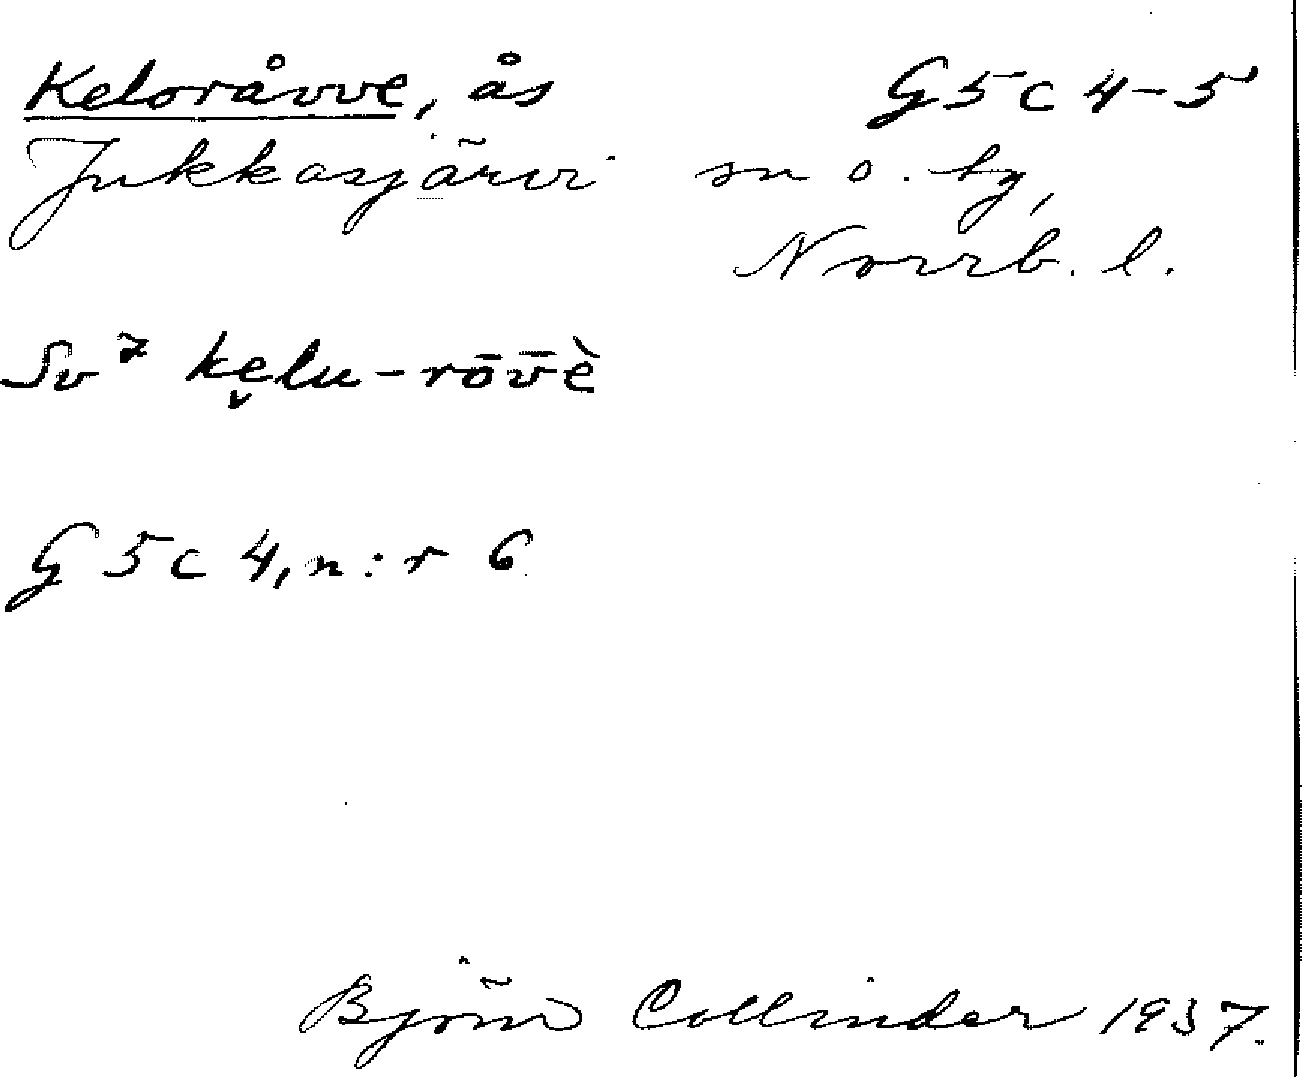 Keloråvve, ås G5c 4-5
Jukkasjärvi sn o. tg,
Norrb. l.
kẹlu-rōv̄ė̀
G5c 4, n:r 6
Björn Collinder 1937.